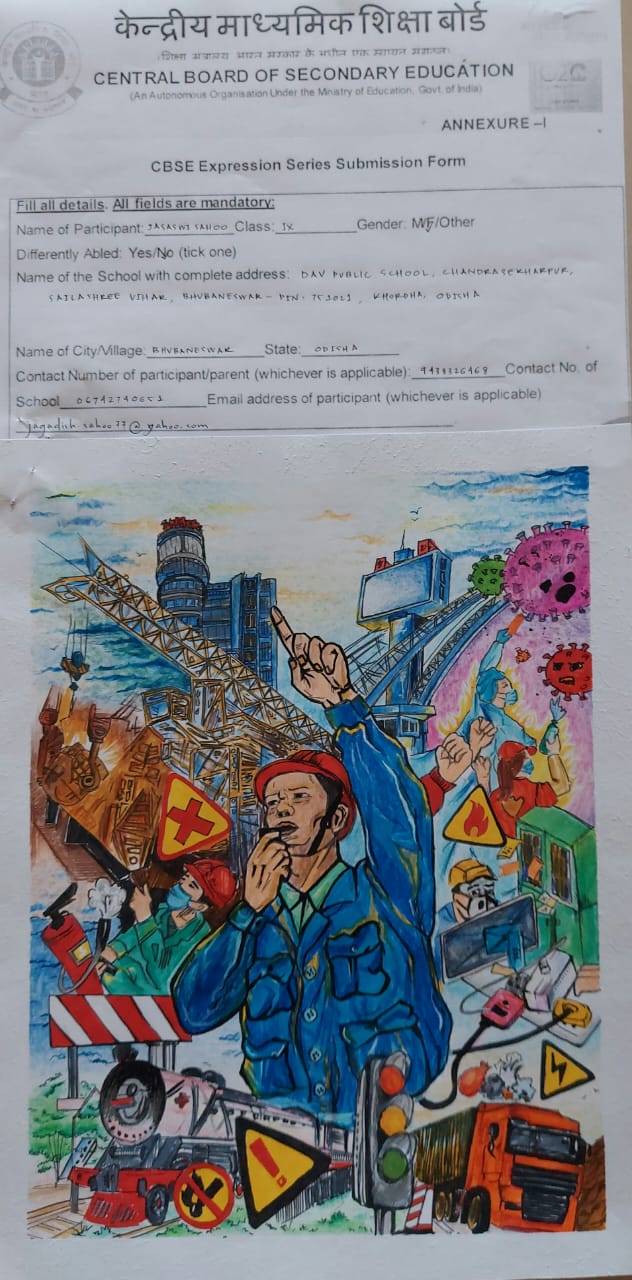 केन्द्रीय माध्यमिक शिक्षा बोर्ड
(शिक्षा मंत्रालय भारत सरकार के अधीन एक स्वायत्त संगठन)
CENTRAL BOARD OF SECONDARY EDUCATION
(An Autonomous Organisation Under the Ministry of Education, Govt. of India)
ANNEXURE –I
CBSE Expression Series Submission Form
Fill all details. All fields are mandatory:
Name of Participant: JASASWI SAHOO Class: IX Gender: M/F/Other
Differently Abled: Yes/No (tick one)
Name of the School with complete address: DAV PUBLIC SCHOOL, CHANDRASEKHARPUR,
SAILASHREE VIHAR, BHUBANESWAR - PIN- 751021, KHORDHA, ODISHA
Name of City/Village: BHUBANESWAR State: ODISHA
Contact Number of participant/parent (whichever is applicable): 9438326469 Contact No. of
School 06742740651 Email address of participant (whichever is applicable)
jagadish.sahoo77@yahoo.com